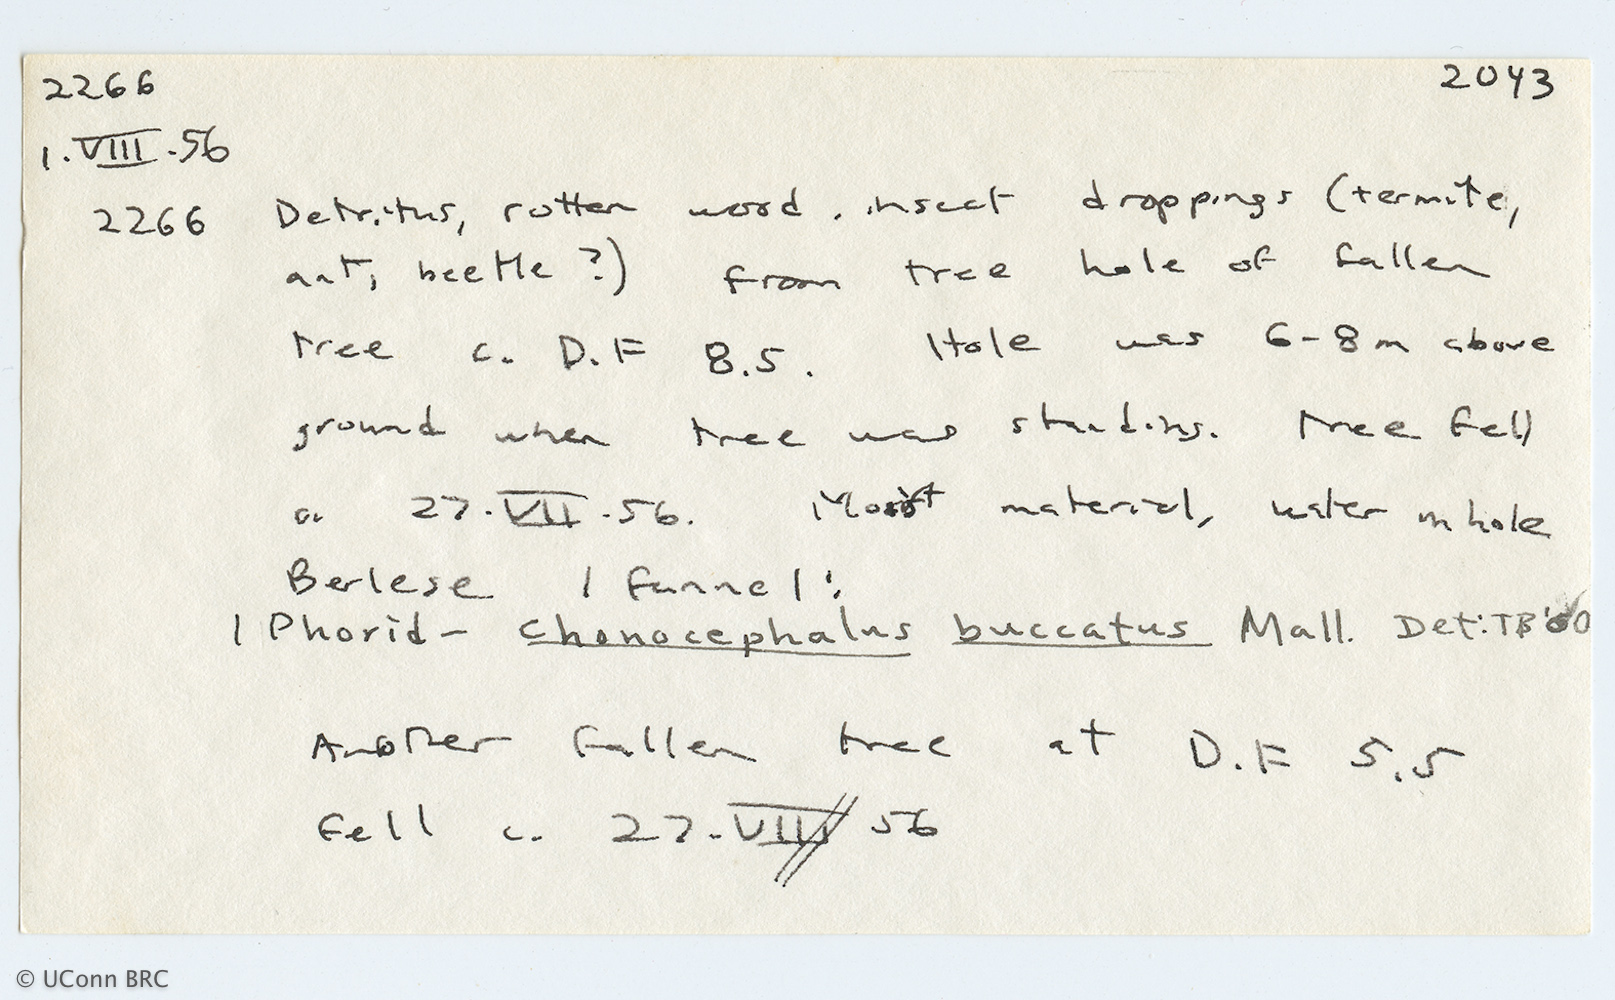 2266 2043
1.VIII.56
2266 Detritus, rotten wood, insect droppings (termite,
ant, beetle?) from tree hole of fallen
tree c. D.F 8.5. Hole was 6-8m above
ground when tree was standing. Tree fell
27.VII.56. Moist material, water in hole
Berlese 1 funnel:
1 Phorid- Chonocephalus buccatus Mall. Det:TB'60
Another fallen tree at D.F 5.5
fell c. 27.VII 56
© UConn BRC